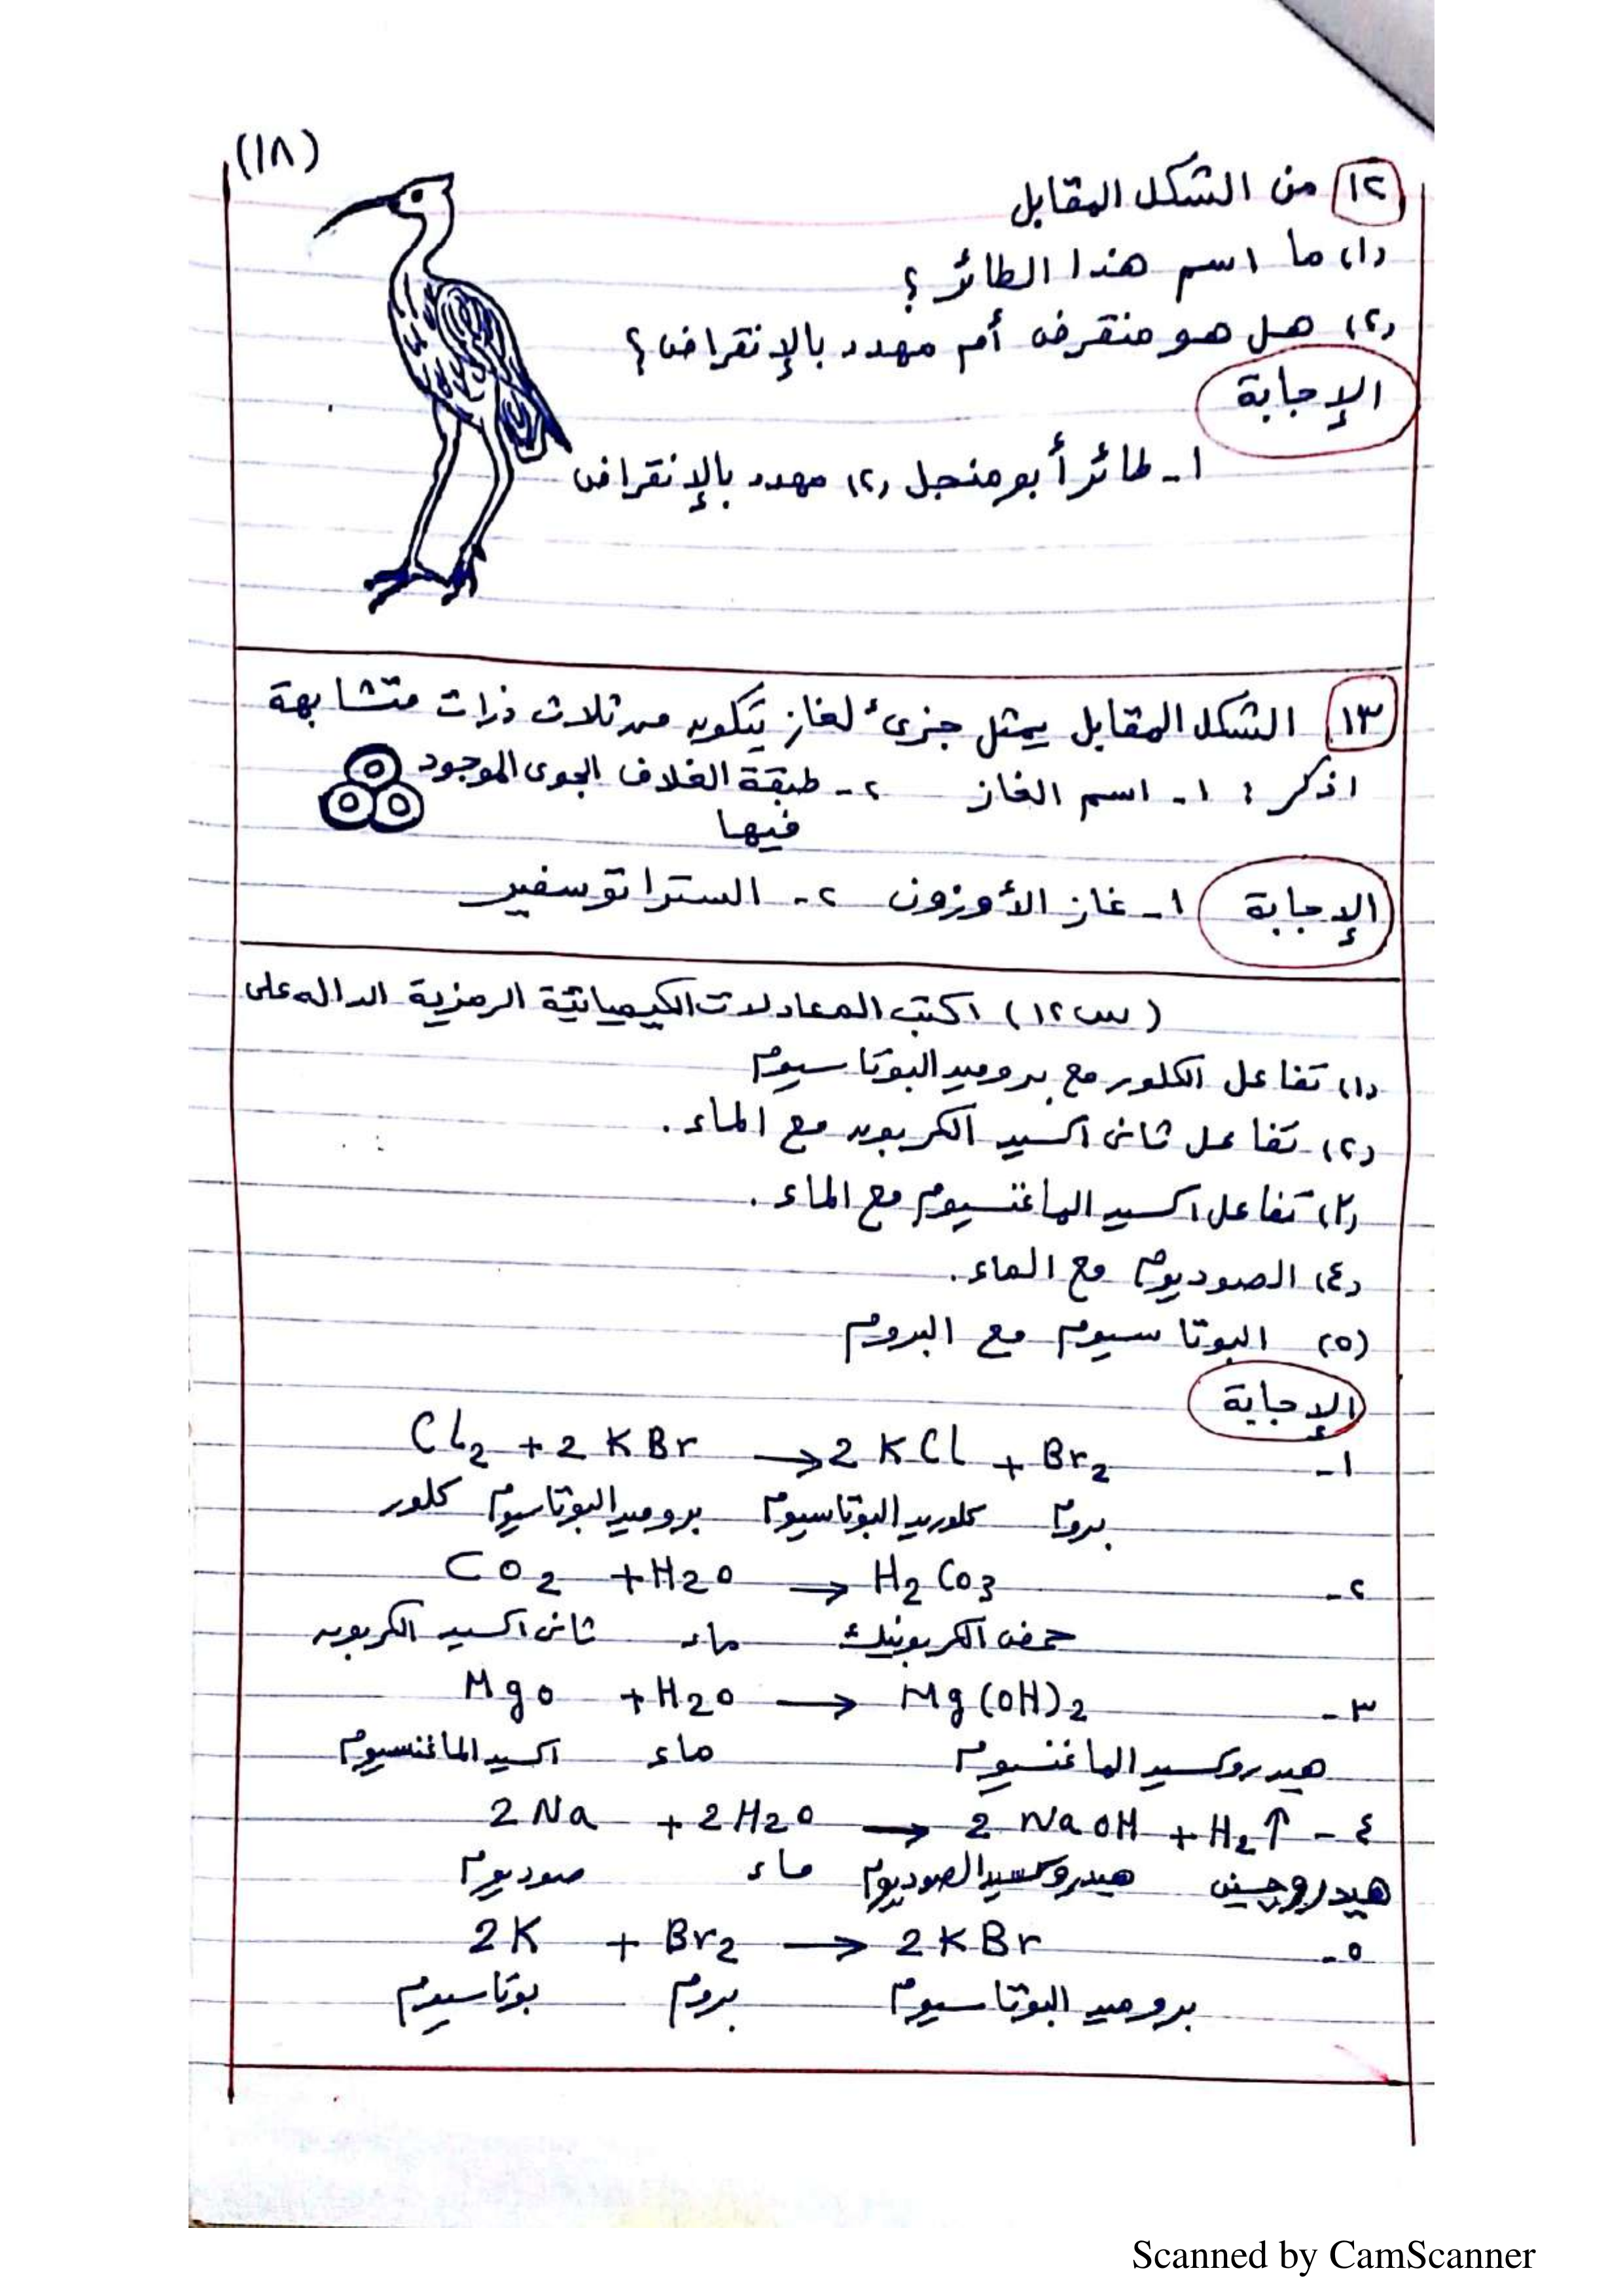 (١٨)
١٢ من الشكل المقابل
(١) ما اسم هذا الطائر ؟
(٢) هل هو منقرض أم مهدد بالإنقراض ؟
الإجابة
١- طائر أبو منجل (٢) مهدد بالإنقراض
١٣ الشكل المقابل يمثل جزئ لغاز يتكون من ثلاث ذرات متشابهة
اذكر : ١- اسم الغاز ٢- طبقة الغلاف الجوى الموجود
فيها
الإجابة ١- غاز الأوزون ٢- الستراتوسفير
(س١٢) اكتب المعادلات الكيميائية الرمزية الداله على
(١) تفاعل الكلور مع بروميد البوتاسيوم
(٢) تفاعل ثانى اكسيد الكربون مع الماء .
(٣) تفاعل اكسيد الماغنسيوم مع الماء .
(٤) الصوديوم مع الماء .
(٥) البوتاسيوم مع البروم
الإجابة
١- Cl2 + 2 KBr → 2 KCl + Br2
كلور بروميد البوتاسيوم كلوريد البوتاسيوم بروم
٢- CO2 + H2O → H2CO3
ثانى اكسيد الكربون ماء حمض الكربونيك
٣- MgO + H2O → Mg(OH)2
اكسيد الماغنسيوم ماء هيدروكسيد الماغنسيوم
٤- 2 Na + 2 H2O → 2 NaOH + H2↑
صوديوم ماء هيدروكسيد الصوديوم هيدروجين
٥- 2K + Br2 → 2KBr
بوتاسيوم بروم بروميد البوتاسيوم
Scanned by CamScanner